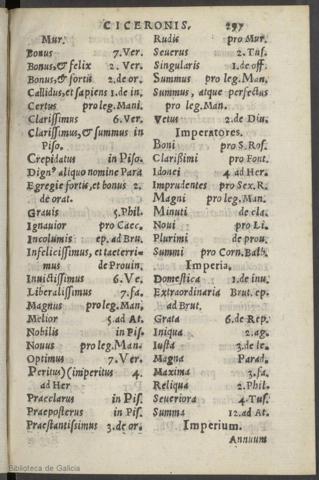 CICERONIS. 297
Mur.
Bonus 7. Ver.
Bonus, & felix 2. Ver.
Bonus, & fortis 2. de or.
Callidus, et sapiens 1. de in.
Certus pro leg. Mani.
Clarissimus 6. Ver.
Clarissimus, & summus in
Piso.
Crepidatus in Piso.
Dign⁹ aliquo nomine Para
Egregie fortis, et bonus 2.
de orat.
Grauis 5. Phil.
Ignauior pro Caec.
Incolumis ep. ad Bru.
Infelicissimus, et taeterri-
mus de Prouin.
Inuictissimus 6. Ve.
Liberalissimus 7. fa.
Magnus pro leg. Man.
Melior 5. ad At.
Nobilis in Pis.
Nouus pro leg. Man.
Optimus 7. Ver.
Peritus)(imperitus 4.
ad Her
Praeclarus in Pis.
Praeposterus in Pis.
Praestantissimus 3. de or.
Rudis pro Mur.
Seuerus 2. Tus.
Singularis 1. de off.
Summus pro leg. Man.
Summus, atque perfectus
pro leg. Man.
Vetus 2. de Diu.
Imperatores.
Boni pro S. Ros.
Clarissimi pro Font.
Idonei 4 ad Her.
Imprudentes pro Sex. R.
Magni pro leg. Man.
Minuti de cla.
Noui pro Li.
Plurimi de prou.
Summi pro Corn. Balb.
Imperia.
Domestica 1. de inu.
Extraordinaria Brut. ep.
ad Brut.
Grata 6. de Rep.
Iniqua 2. ag.
Iusta 3. de le.
Magna Parad.
Maxima 3. fa.
Reliqua 2. Phil.
Seueriora 4. Tus.
Summa 12. ad At.
Imperium.
Annuum
Biblioteca de Galicia